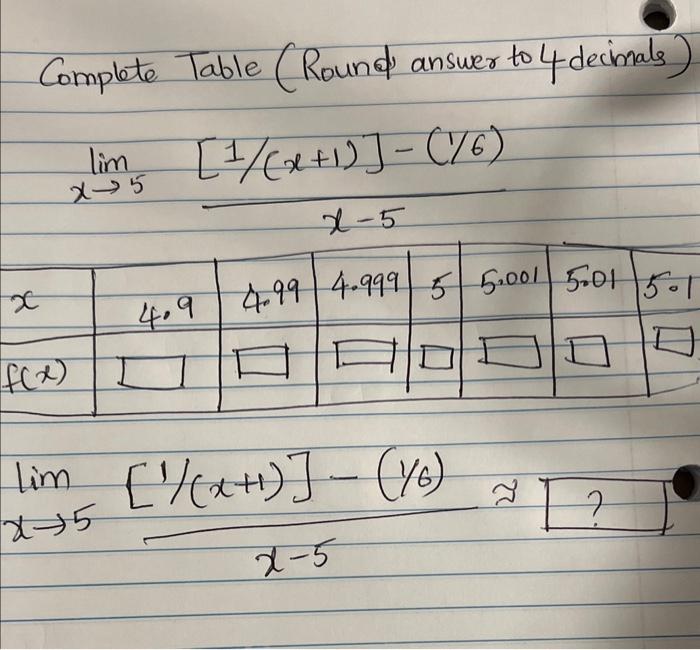 Complete Table (Round answer to 4 decimals)
lim x→5 [1/(x+1)] - (1/6)
x-5
x 4.9 4.99 4.999 5 5.001 5.01 5.1
f(x)
lim x→5 [1/(x+1)] - (1/6) ≈ ?
x-5